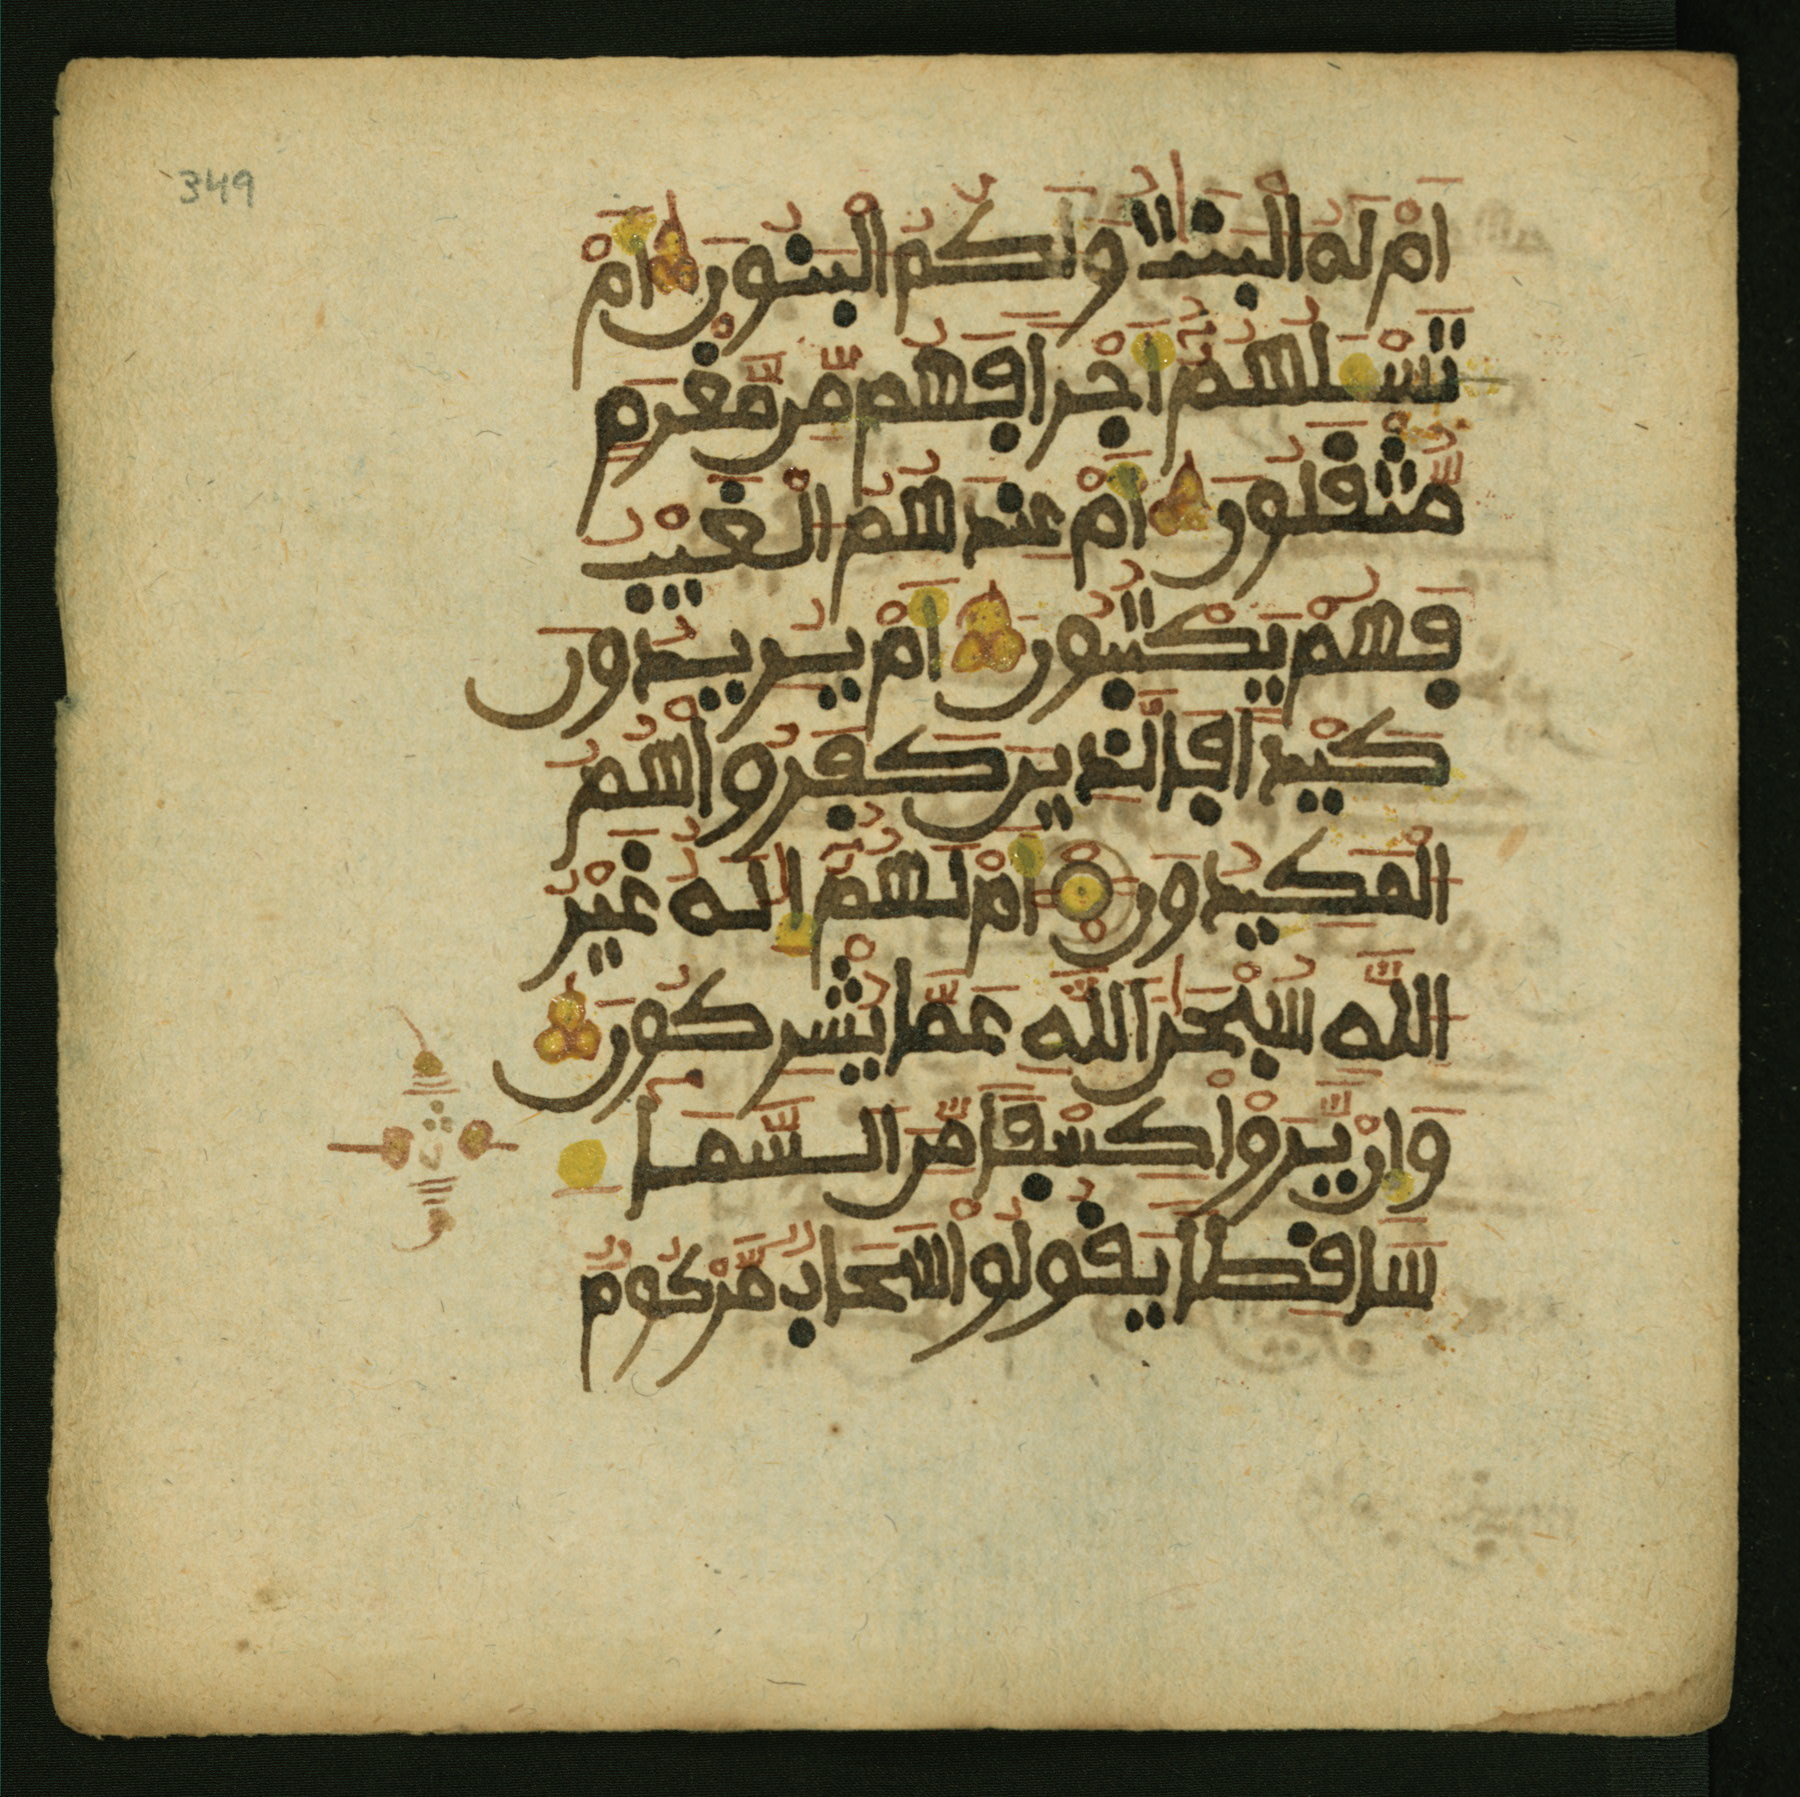 349
اَمْ لَهُ الْبَنَٰتُ وَلَكُمُ الْبَنُونَ اَمْ
تَسْـَٔلُهُمُۥٓ أَجْراً فَهُم مِّن مَّغْرَمٍ
مُّثْقَلُونَ أَمْ عِندَهُمُ الْغَيْبُ
فَهُمْ يَكْتُبُونَ أَمْ يُرِيدُونَ
كَيْداً فَالَّذِينَ كَفَرُوا هُمُ
الْمَكِيدُونَ أَمْ لَهُمُۥٓ إِلَٰهٌ غَيْرُ
اللَّهِ سُبْحَٰنَ اللَّهِ عَمَّا يُشْرِكُونَ
وَإِنْ يَّرَوْا كِسْفاً مِّنَ السَّمَآءِ
سَاقِطاً يَقُولُوا سَحَابٌ مَّرْكُومٌ